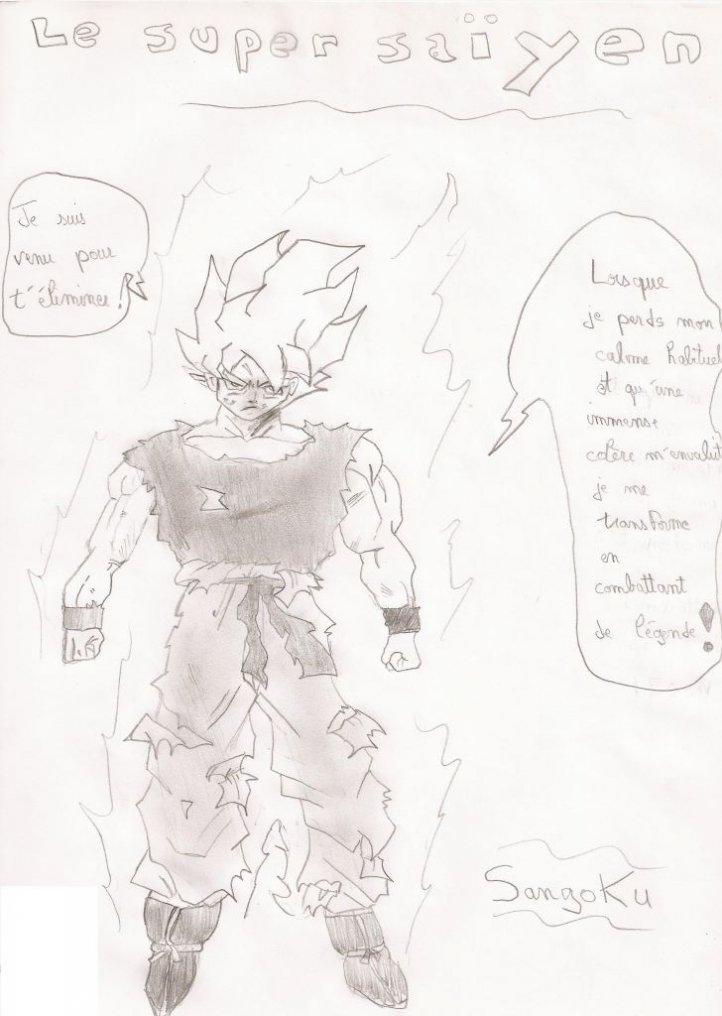 Le super saïyen
Je suis
venu pour
t'éliminer !
Lorsque
je perds mon
calme habituel
et qu'une
immense
colère m'envahit
je me
transforme
en
combattant
de légende !
SangoKu